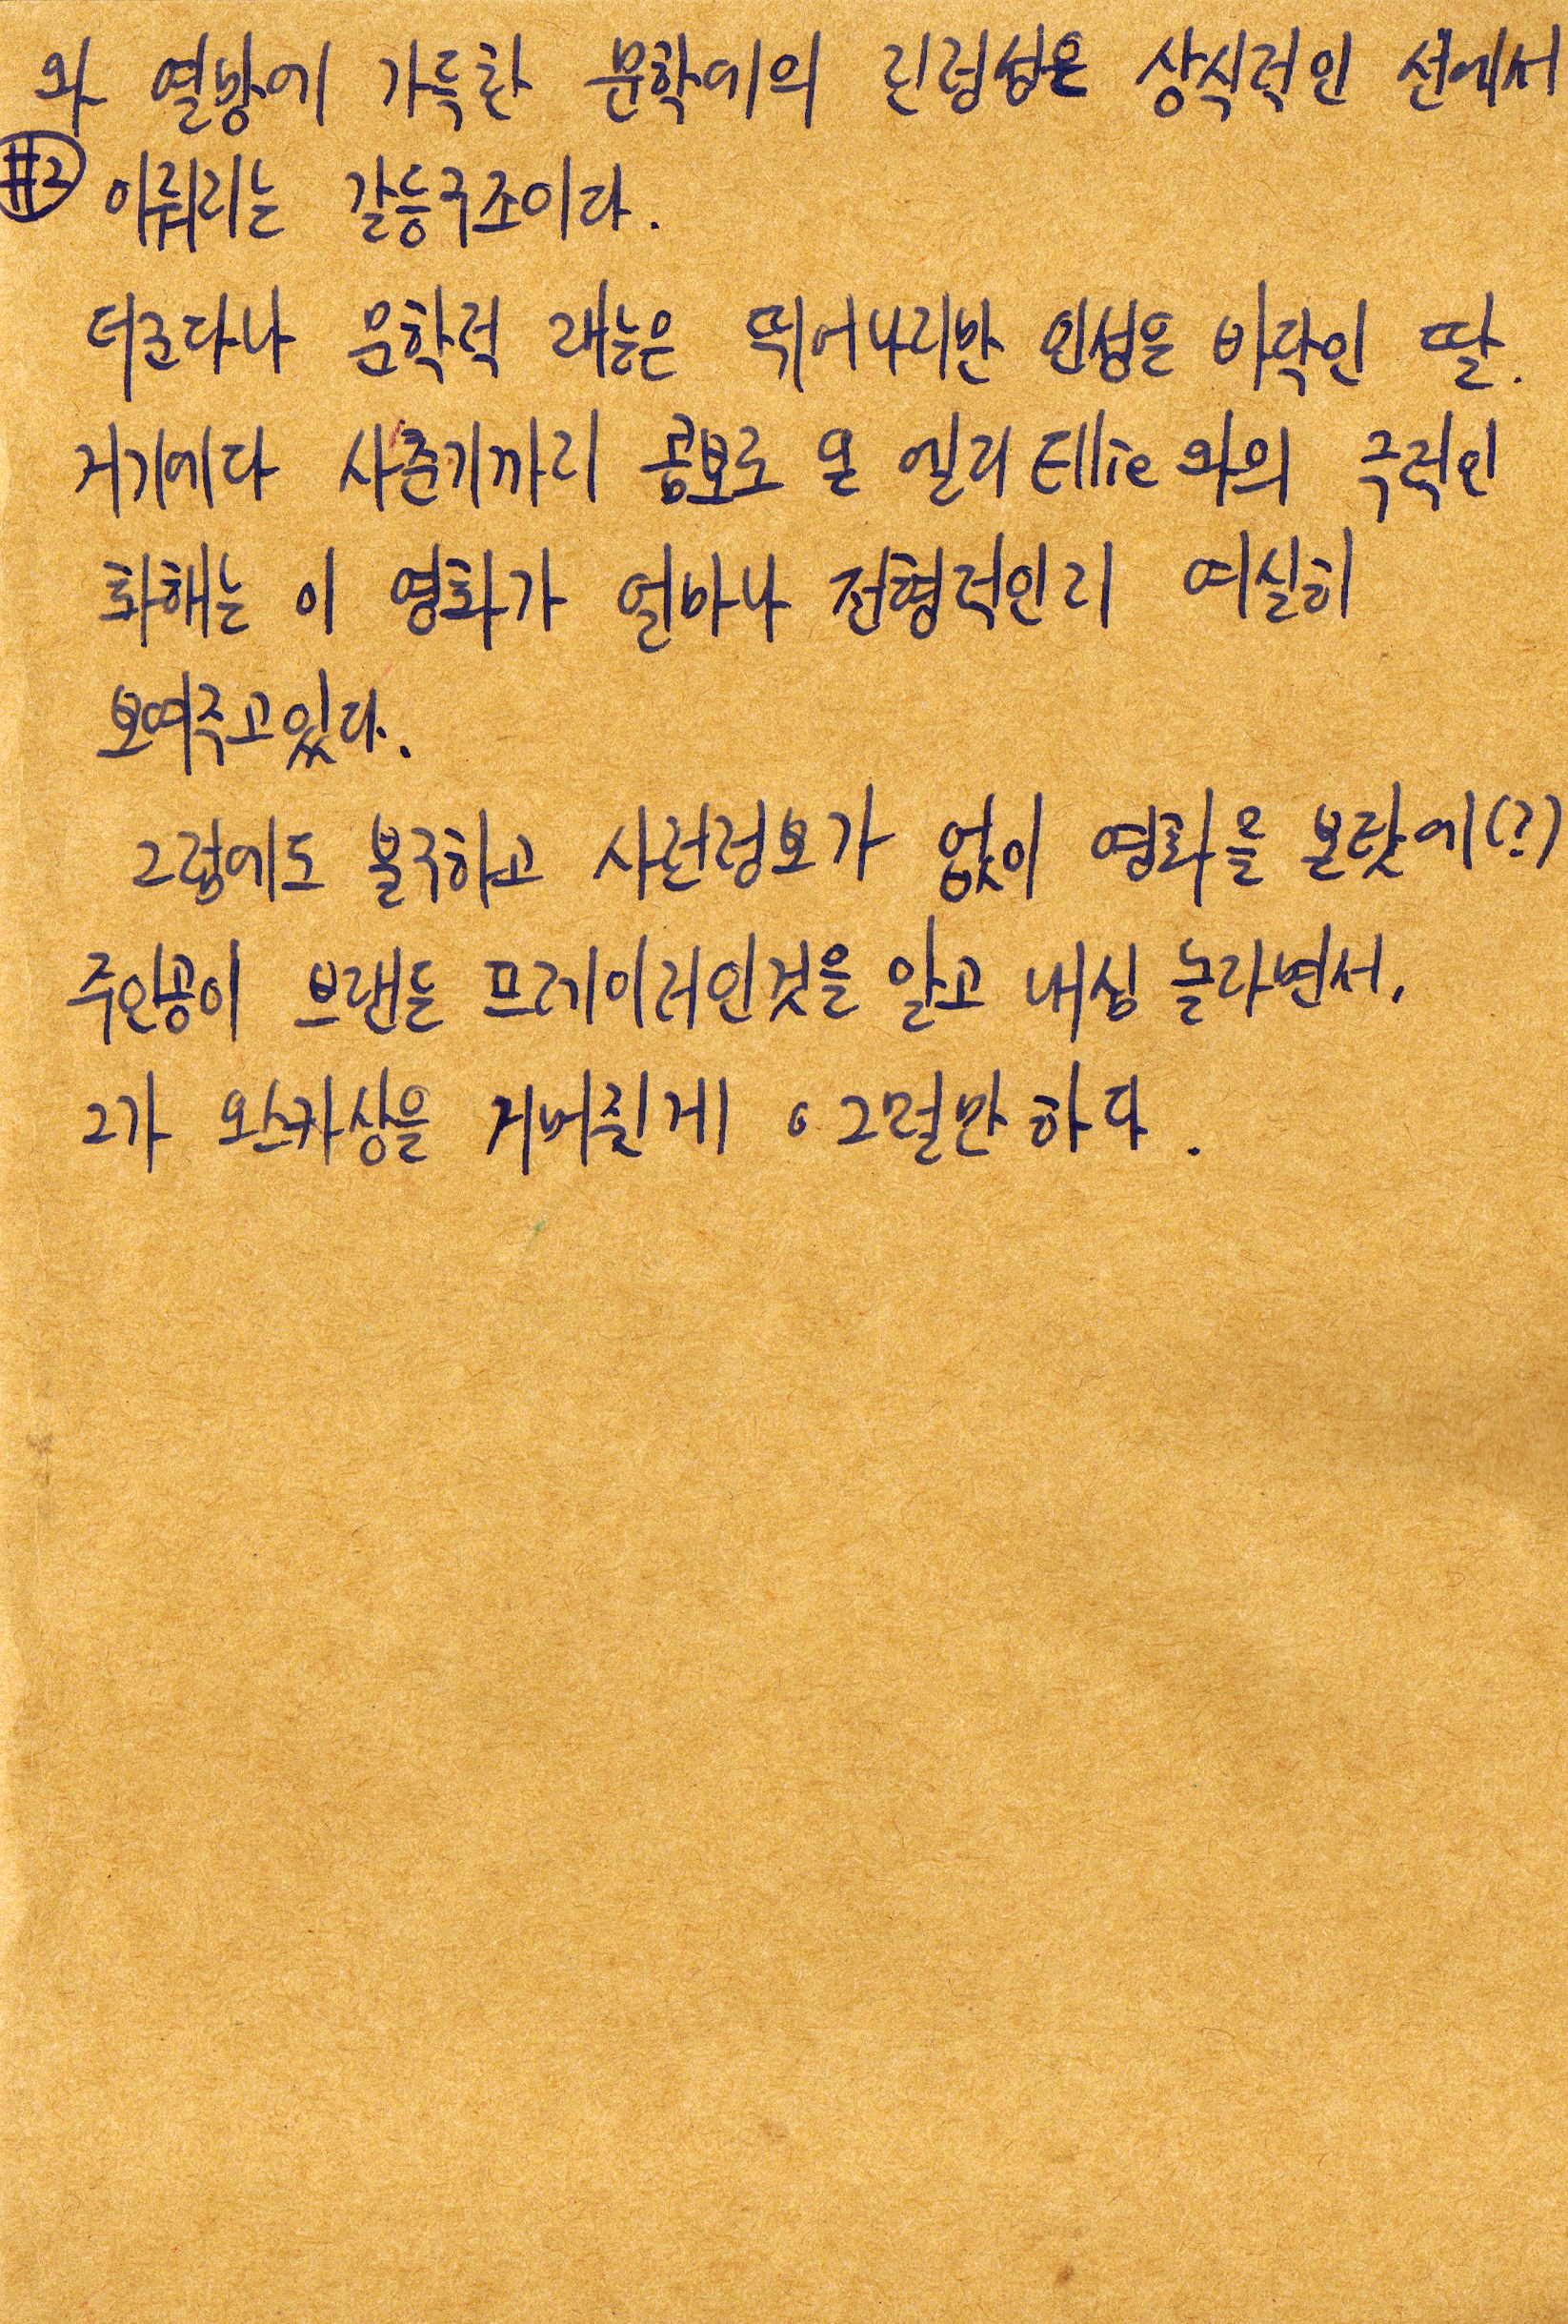 와 열망에 가득한 문학에의 진정성은 상식적인 선에서
#2 이뤄지는 갈등구조이다.
더군다나 문학적 재능은 뛰어나지만 인성은 바닥인 딸.
거기에다 사춘기까지 콤보로 온 엘리 Ellie 와의 극적인
화해는 이 영화가 얼마나 전형적인지 여실히
보여주고있다.
그럼에도 불구하고 사전정보가 없이 영화를 본탓에(?)
주인공이 브랜든 프레이저인것을 알고 내심 놀라면서,
그가 오스카상을 거머쥔게 그럴만하다.